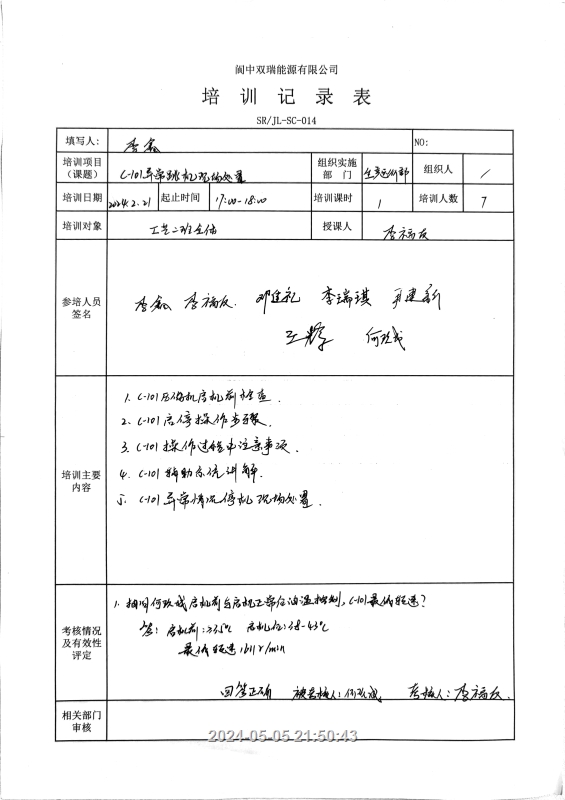 阆中双瑞能源有限公司
培训记录表
SR/JL-SC-014
填写人： 李鑫 NO:
培训项目（课题） C-101异常跳机现场处置 组织实施部门 生产运行部 组织人 /
培训日期 2024.2.21 起止时间 17:00-18:00 培训课时 1 培训人数 7
培训对象 工艺二班全体 授课人 李福友
参培人员签名
李鑫 李福友 邓廷礼 李瑞琪
王辉 何玖成
培训主要内容
1. C-101压缩机启机前检查.
2. C-101启停操作步骤.
3. C-101操作过程中注意事项.
4. C-101辅助系统讲解.
5. C-101异常情况停机现场处置.
考核情况及有效性评定
1. 抽问何玖成启机前与启机正常后油温控制, C-101最低转速?
答: 启机前: ≥35℃ 启机后: 38-43℃
最低转速 1611r/min
回答正确 被考核人: 何玖成 考核人: 李福友.
相关部门审核
2024-05-05 21:50:43